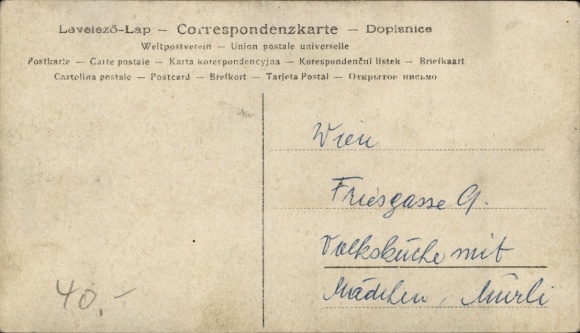 Levelező-Lap — Correspondenzkarte — Dopisnice
Weltpostverein — Union postale universelle
Postkarte — Carte postale — Karta korespondencyjna — Korespondenční lístek — Briefkaart
Cartolina postale — Postcard — Brefkort — Tarjeta Postal — Открытое письмо
Wien
Friesgasse 9.
Volksküche mit
Mädchen, Mürli
40.-